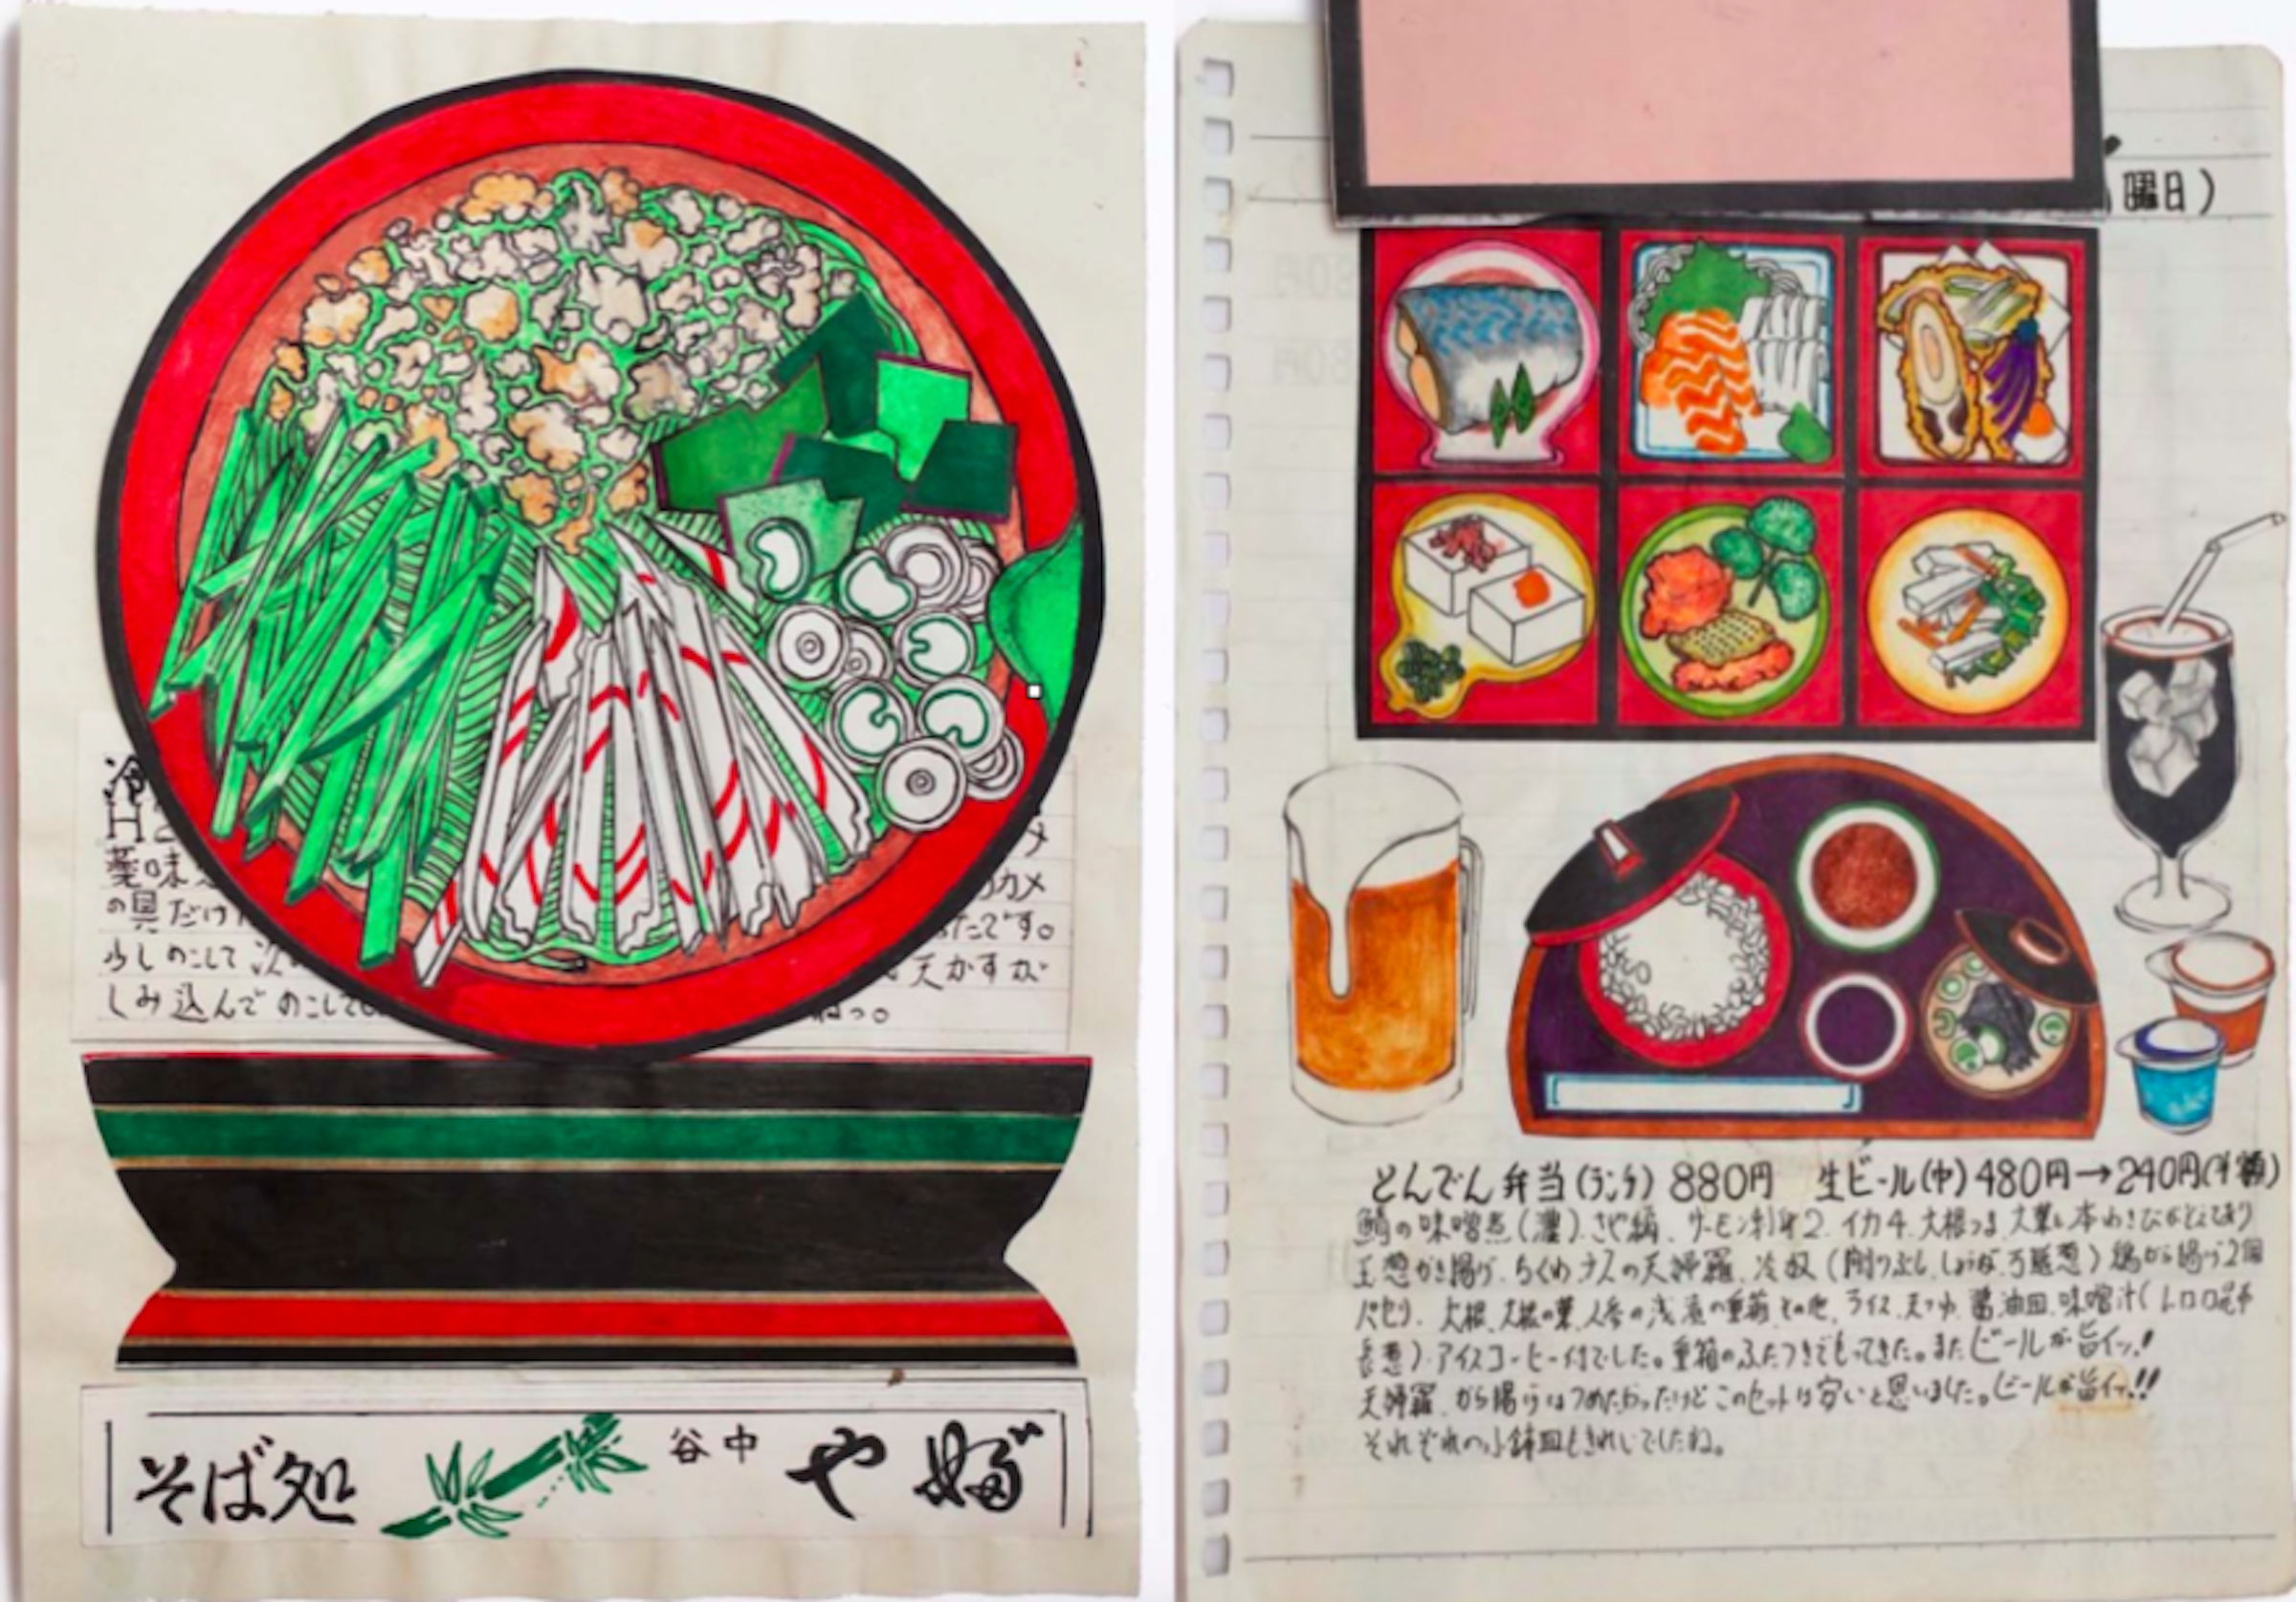 冷
H2
メ
薬味
カメ
の具だけ
たです。
少しのこして次
天かすが
しみ込んでのこして
ねっ。
そば処 谷中 や婦゛
曜日)
とんでん弁当(ランチ) 880円 生ビール(中)480円→240円(半額)
鯖の味噌煮(温).さや編、サーモン刺身2.イカ4.大根つま.大葉.本わさび
玉葱かき揚げ.ちくわナスの天婦羅.冷奴(削りぶし.しょうが.万能葱)鶏から揚げ2個
パセリ.大根.大根の葉.人参の浅漬の重箱その他.ライス.天つゆ.醤油皿.味噌汁(とろろ昆布
長葱).アイスコーヒー付でした。重箱のふたつきでもってきた。またビールが旨イッ!
天婦羅、から揚げはつめたかったけどこのセットは安いと思いました。ビールが旨イッ!!
それぞれの小鉢皿もきれいでしたね。